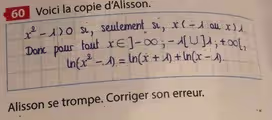 60 Voici la copie d'Alisson.
x² - 1 > 0 si, seulement si, x < -1 ou x > 1
Donc pour tout x ∈ ]-∞ ; -1[ ∪ ]1 ; +∞[,
ln(x² - 1) = ln(x + 1) + ln(x - 1).
Alisson se trompe. Corriger son erreur.